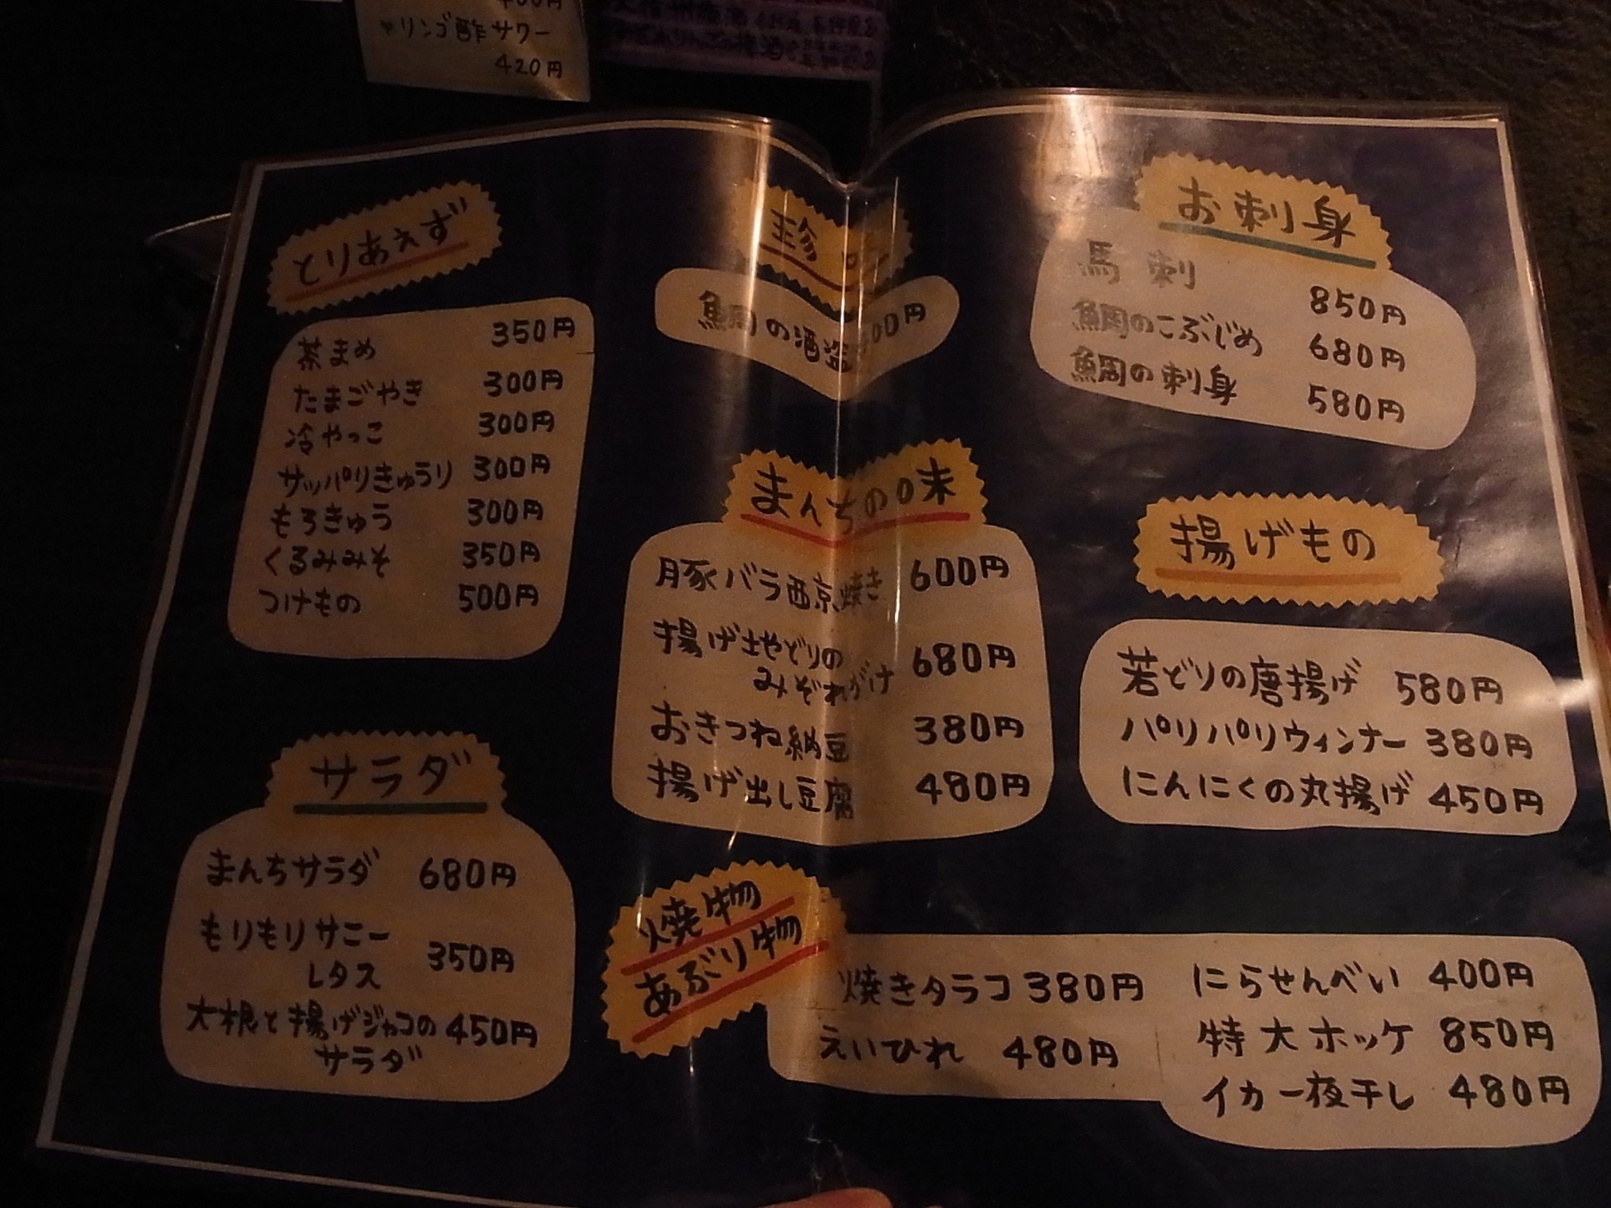 リンゴ酢サワー
420円
とりあえず
茶まめ 350円
たまごやき 300円
冷やっこ 300円
サッパリきゅうり 300円
もろきゅう 300円
くるみみそ 350円
つけもの 500円
サラダ
まんちサラダ 680円
もりもりサニー
レタス 350円
大根と揚げジャコの 450円
サラダ
珍
鯛の酒盗 00円
まんちの味
豚バラ西京焼き 600円
揚げ地どりの 680円
みぞれがけ
おきつね納豆 380円
揚げ出し豆腐 480円
お刺身
馬刺 850円
鯛のこぶじめ 680円
鯛の刺身 580円
揚げもの
若どりの唐揚げ 580円
パリパリウィンナー 380円
にんにくの丸揚げ 450円
焼物
あぶり物
焼きタラコ 380円
えいひれ 480円
にらせんべい 400円
特大ホッケ 850円
イカ一夜干し 480円